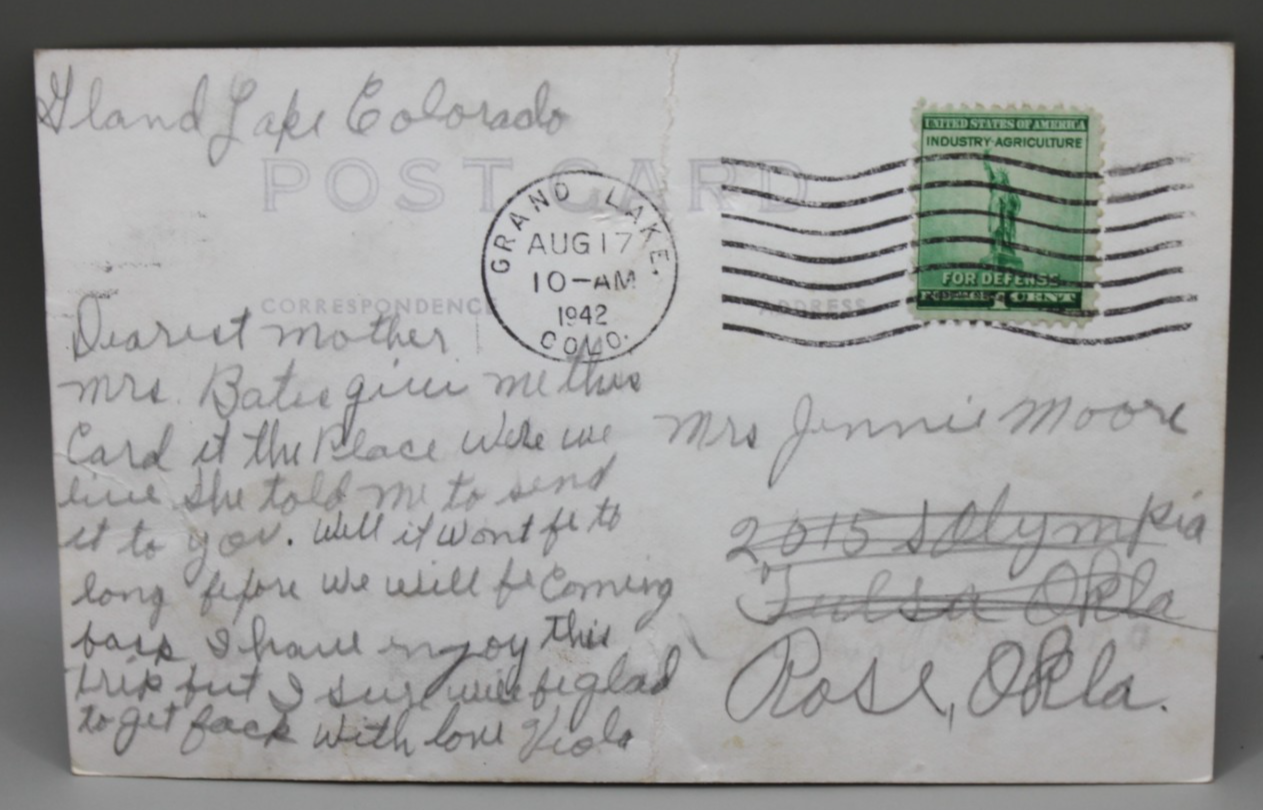 Gland Lake Colorado
POST CARD
GRAND LAKE.
AUG 17
10-AM
1942
COLO.
UNITED STATES OF AMERICA
INDUSTRY AGRICULTURE
FOR DEFENSE
1 CENT
CORRESPONDENCE
ADDRESS
Dearest Mother
Mrs. Bates give me this
Card it the Place were we
live She told me to send
it to you. Well it wont be to
long before we will be Coming
back I have enjoy this
trip but I sur will be glad
to get back with love Viola
Mrs Jennie Moore
2015 S Olympia
Tulsa Okla
Rose, Okla.